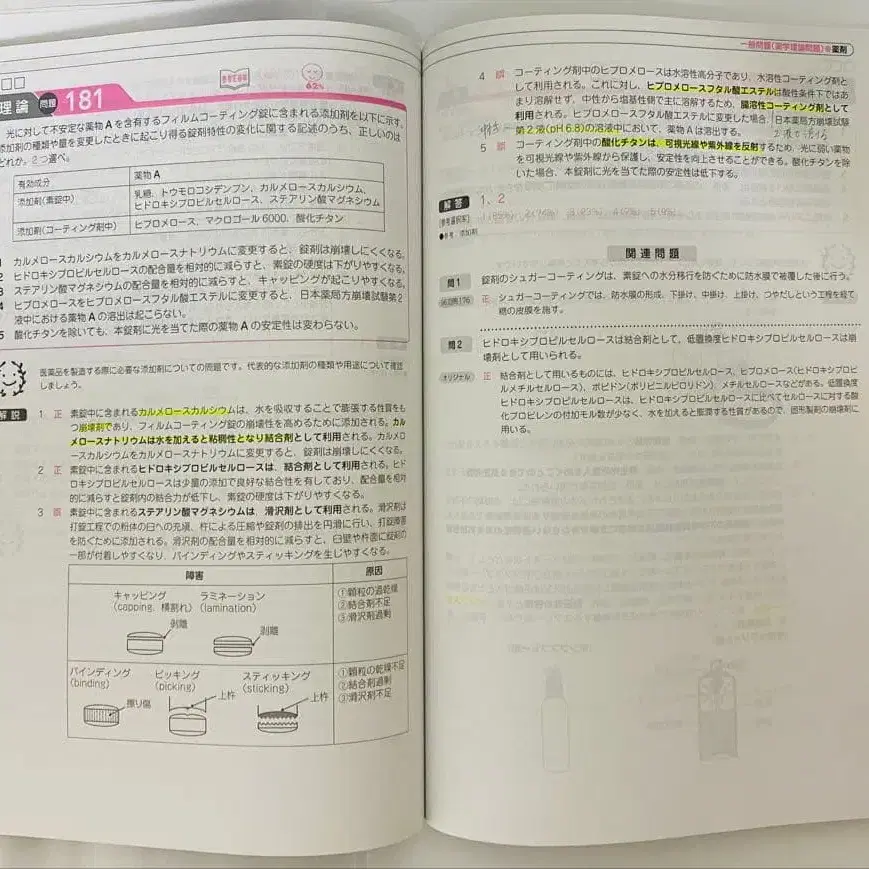 理論 問題 181
62%
光に対して不安定な薬物Aを含有するフィルムコーティング錠に含まれる添加剤を以下に示す。
添加剤の種類や量を変更したときに起こり得る錠剤特性の変化に関する記述のうち、正しいのは
どれか。2つ選べ。
有効成分 薬物A
添加剤(素錠中) 乳糖、トウモロコシデンプン、カルメロースカルシウム、
ヒドロキシプロピルセルロース、ステアリン酸マグネシウム
添加剤(コーティング剤中) ヒプロメロース、マクロゴール6000、酸化チタン
1 カルメロースカルシウムをカルメロースナトリウムに変更すると、錠剤は崩壊しにくくなる。
2 ヒドロキシプロピルセルロースの配合量を相対的に減らすと、素錠の硬度は下がりやすくなる。
3 ステアリン酸マグネシウムの配合量を相対的に減らすと、キャッピングが起こりやすくなる。
4 ヒプロメロースをヒプロメロースフタル酸エステルに変更すると、日本薬局方崩壊試験第2
液中における薬物Aの溶出は起こらない。
5 酸化チタンを除いても、本錠剤に光を当てた際の薬物Aの安定性は変わらない。
医薬品を製造する際に必要な添加剤についての問題です。代表的な添加剤の種類や用途について確認
しましょう。
解説 1 正 素錠中に含まれるカルメロースカルシウムは、水を吸収することで膨張する性質をも
つ崩壊剤であり、フィルムコーティング錠の崩壊性を高めるために添加される。カル
メロースナトリウムは水を加えると粘稠性となり結合剤として利用される。カルメロ
ースカルシウムをカルメロースナトリウムに変更すると、錠剤は崩壊しにくくなる。
2 正 素錠中に含まれるヒドロキシプロピルセルロースは、結合剤として利用される。ヒド
ロキシプロピルセルロースは少量の添加で良好な結合性を有しており、配合量を相対
的に減らすと錠剤内の結合力が低下し、素錠の硬度は下がりやすくなる。
3 誤 素錠中に含まれるステアリン酸マグネシウムは、滑沢剤として利用される。滑沢剤は
打錠工程での粉体の臼への充填、杵による圧縮や錠剤の排出を円滑に行い、打錠障害
を防ぐために添加される。滑沢剤の配合量を相対的に減らすと、臼壁や杵面に錠剤の
一部が付着しやすくなり、バインディングやスティッキングを生じやすくなる。
障害 原因
キャッピング ラミネーション
(capping, 横割れ) (lamination)
剥離 剥離
①顆粒の過乾燥
②結合剤不足
③滑沢剤過剰
バインディング ピッキング スティッキング
(binding) (picking) (sticking)
擦り傷 上杵 上杵
①顆粒の乾燥不足
②結合剤過剰
③滑沢剤不足
一般問題(薬学理論問題) 薬剤
4 誤 コーティング剤中のヒプロメロースは水溶性高分子であり、水溶性コーティング剤と
して利用される。これに対し、ヒプロメロースフタル酸エステルは酸性条件下ではあ
まり溶解せず、中性から塩基性側で主に溶解するため、腸溶性コーティング剤として
利用される。ヒプロメロースフタル酸エステルに変更した場合、日本薬局方崩壊試験
第2液(pH6.8)の溶液中において、薬物Aは溶出する。
5 誤 コーティング剤中の酸化チタンは、可視光線や紫外線を反射するため、光に弱い薬物
を可視光線や紫外線から保護し、安定性を向上させることができる。酸化チタンを除
いた場合、本錠剤に光を当てた際の安定性は低下する。
解答 1、2
●参考:添加剤
関連問題
問1 錠剤のシュガーコーティングは、素錠への水分移行を防ぐために防水膜で被覆した後に行う。
正 シュガーコーティングでは、防水膜の形成、下掛け、中掛け、上掛け、つやだしという工程を経て
糖の皮膜を施す。
問2 ヒドロキシプロピルセルロースは結合剤として、低置換度ヒドロキシプロピルセルロースは崩
壊剤として用いられる。
オリジナル 正 結合剤として用いるものには、ヒドロキシプロピルセルロース、ヒプロメロース(ヒドロキシプロピ
ルメチルセルロース)、ポビドン(ポリビニルピロリドン)、メチルセルロースなどがある。低置換度
ヒドロキシプロピルセルロースは、ヒドロキシプロピルセルロースに比べてセルロースに対する酸
化プロピレンの付加モル数が少なく、水を加えると膨潤する性質があるので、固形製剤の崩壊剤に
用いる。